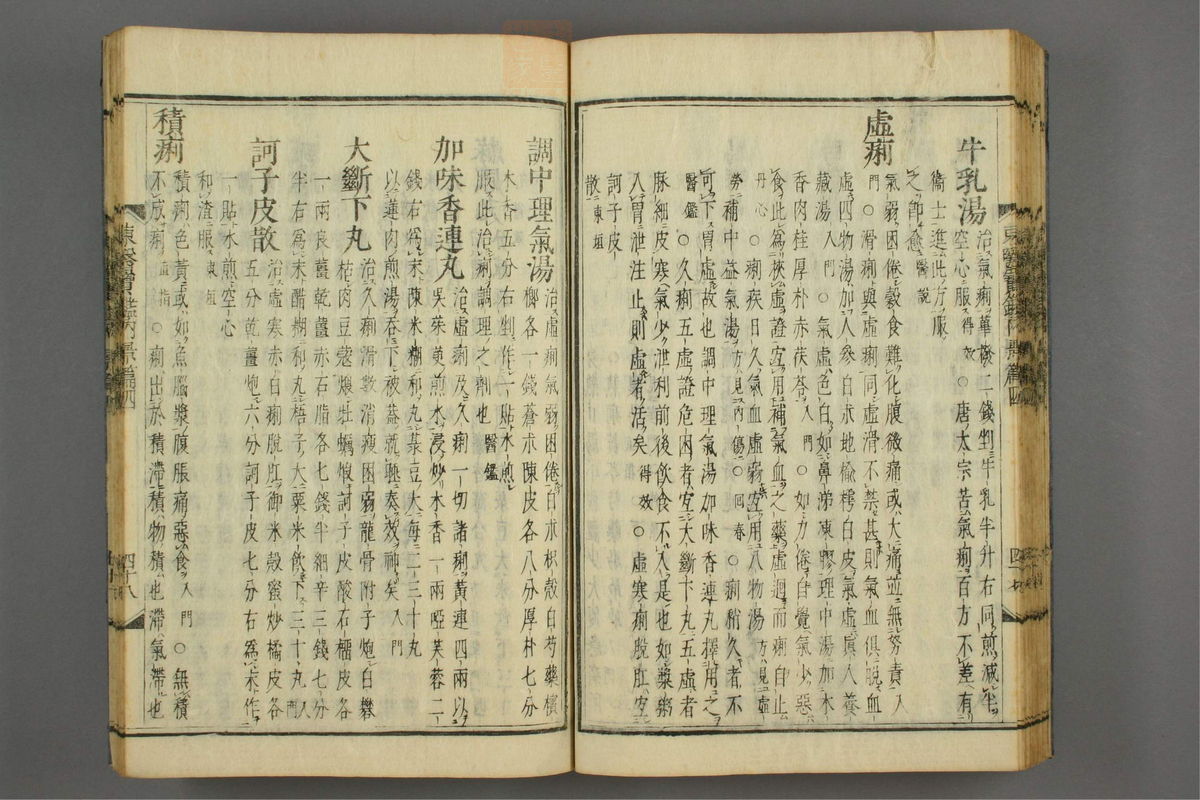 牛乳湯 治氣痢華撥二錢剉牛乳半升右同煎減半
空心服得效○唐太宗苦氣痢百方不差有
衞士進此方服
之卽愈醫說
虛痢 氣弱困倦穀食難化腹微痛或大痛並無努責入
門○滑痢與虛痢同虛滑不禁甚則氣血俱脫血
虛四物湯加人參白朮地楡樗白皮氣虛眞人養
藏湯入門○氣虛色白如鼻涕凍膠理中湯加木
香肉桂厚朴赤茯苓入門○如力倦自覺氣少惡
食此爲挾虛證宜用補氣血之藥虛迴而痢自止
丹心○痢疾日久氣血虛弱宜用八物湯方見虛
勞補中益氣湯方見內傷○回春○痢稍久者不
可下胃虛故也調中理氣湯加味香連丸擇用之
醫鑑○久痢五虛證危困者宜大斷下丸五虛者
脉細皮寒氣少泄利前後飮食不入是也如漿粥
入胃泄注止則虛者活矣得效○虛寒痢脫肛宜
訶子皮
散東垣
調中理氣湯 治虛痢氣弱困倦白朮枳殼白芍藥檳
榔各一錢蒼朮陳皮各八分厚朴七分
木香五分右剉作一貼水煎
服此治痢調理之劑也醫鑑
加味香連丸 治虛痢及久痢一切諸痢黃連四兩以
吳茱萸煎水浸炒木香一兩啞芙蓉二
錢右爲末陳米糊和丸菉豆大每二三十丸
以蓮肉煎湯呑下被蓋就睡奏效神矣入門
大斷下丸 治久痢滑數消瘦困弱龍骨附子炮白礬
枯肉豆蔲煨牡蠣煅訶子皮酸石榴皮各
一兩良薑乾薑赤石脂各七錢半細辛三錢七分
半右爲末醋糊和丸梧子大粟米飮下三十丸入門
訶子皮散 治虛寒赤白痢脫肛御米殼蜜炒橘皮各
五分乾薑炮六分訶子皮七分右爲末作
一貼水煎空心
和渣服東垣
積痢 積痢色黃或如魚腦漿腹脹痛惡食入門○無積
不成痢直指○痢出於積滯積物積也滯氣滯也
東醫寶鑑內景篇四
四十八